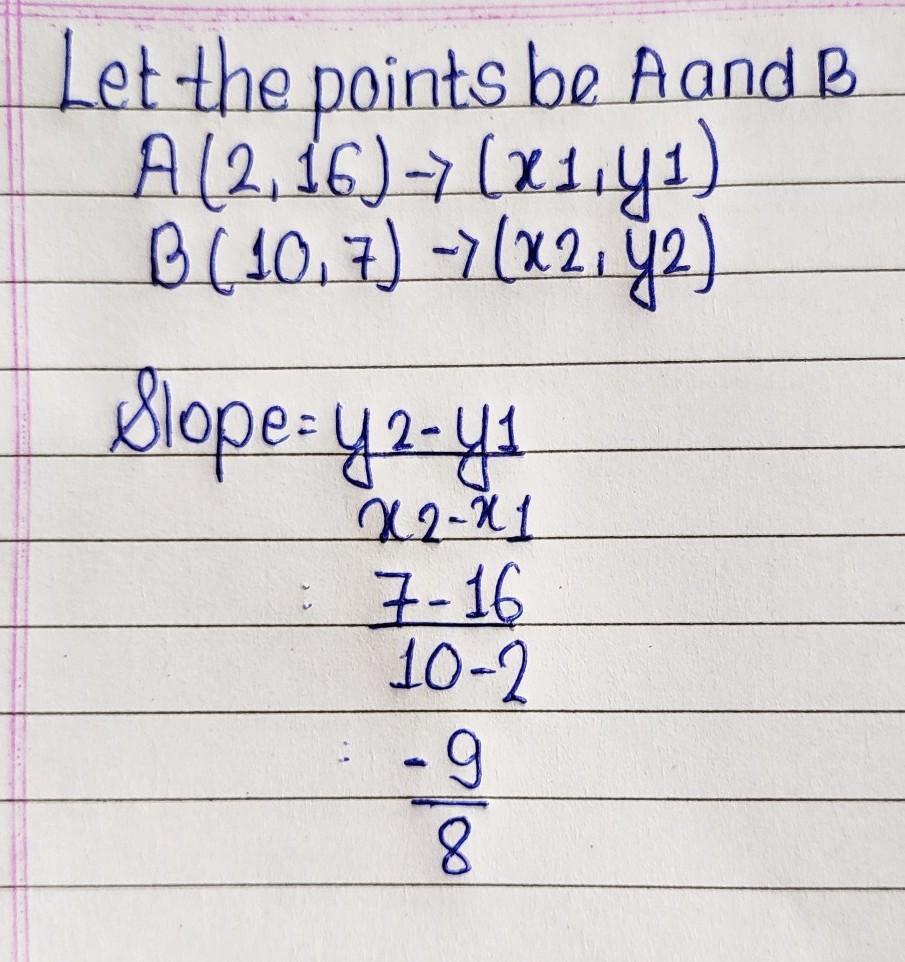 Let the points be A and B
A(2,16)→(x1,y1)
B(10,7)→(x2,y2)
Slope=y2-y1
x2-x1
: 7-16
10-2
: -9
8